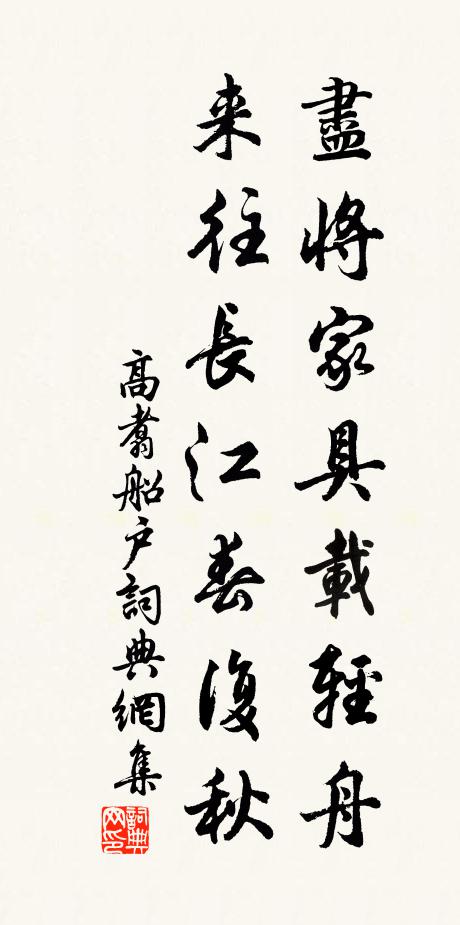 盡將家具載輕舟
来往長江春復秋
高翥船户詞典網集
詞典網印